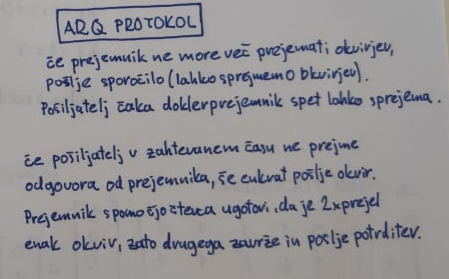 ARQ PROTOKOL
če prejemnik ne more več prejemati okvirjev,
pošlje sporočilo (lahko sprejmem 0 okvirjev).
Pošiljatelj čaka dokler prejemnik spet lahko sprejema.
če pošiljatelj v zahtevanem času ne prejme
odgovora od prejemnika, še enkrat pošlje okvir.
Prejemnik s pomočjo števca ugotovi, da je 2x prejel
enak okvir, zato drugega zavrže in pošlje potrditev.